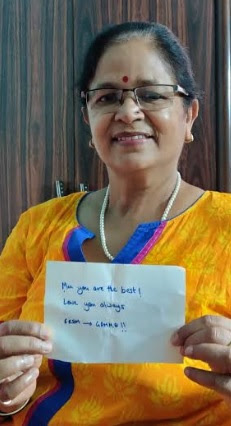 Mum you are the best!
Love you always
from →